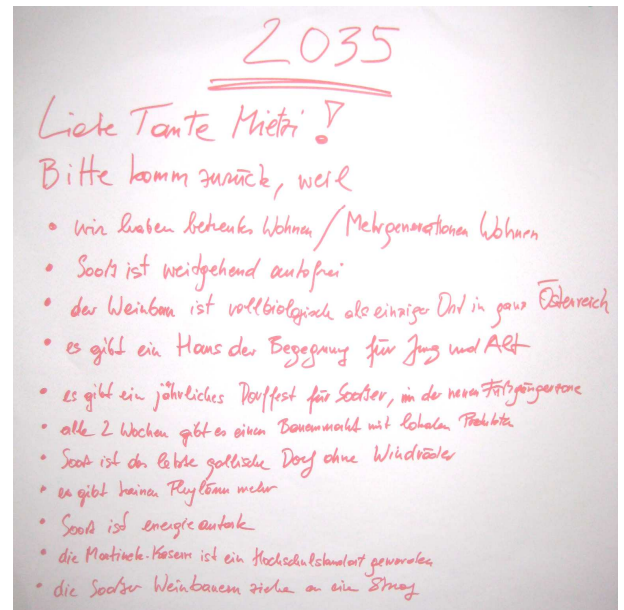 2035
Liebe Tante Mietzi!
Bitte komm zurück, weil
• wir haben betreutes Wohnen / Mehrgenerationen Wohnen
• Sooß ist weidgehend autofrei
• der Weinbau ist vollbiologisch als einziger Ort in ganz Österreich
• es gibt ein Haus der Begegnung für Jung und Alt
• es gibt ein jährliches Dorffest für Sooßer, in der neuen Fußgängerzone
• alle 2 Wochen gibt es einen Bauernmarkt mit lokalen Produkten
• Sooß ist das letzte gallische Dorf ohne Windräder
• es gibt keinen Fluglärm mehr
• Sooß ist energieautark
• die Martinek-Kaserne ist ein Hochschulstandort geworden
• die Sooßer Weinbauern ziehen an ein Strang